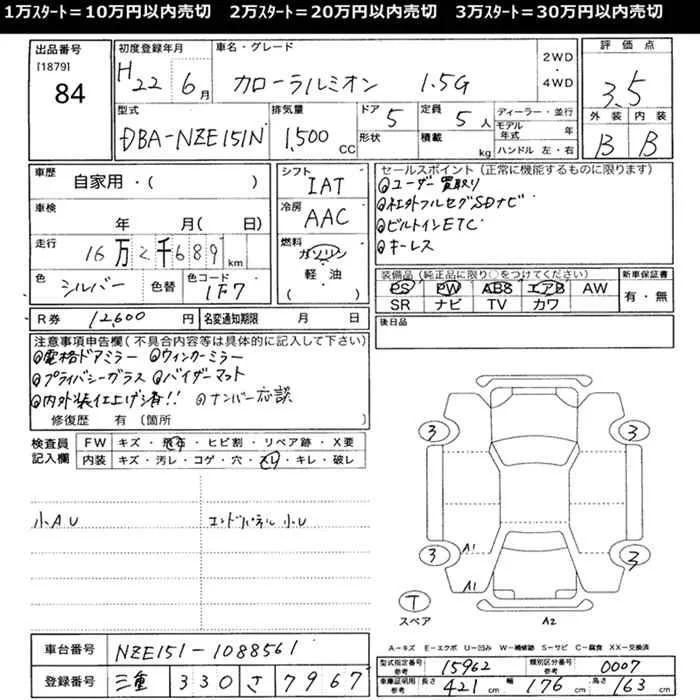 1万ｽﾀｰﾄ＝10万円以内売切 2万ｽﾀｰﾄ＝20万円以内売切 3万ｽﾀｰﾄ＝30万円以内売切
出品番号 [1879] 84
初度登録年月 H22年6月
車名・グレード カローラルミオン 1.5G
2WD・4WD
評価点 3.5
外装 B 内装 B
型式 DBA-NZE151N
排気量 1,500 CC
ドア 5 形状
定員 5人 積載 kg
ディーラー・並行
モデル年式 年
ハンドル 左・右
車歴 自家用・( )
車検 年 月( 日)
走行 16万2千689 km
色 シルバー 色替 色コード 1F7
シフト IAT
冷房 AAC
燃料 ガソリン
軽・油
( )
セールスポイント(正常に機能するものに限ります)
◎ユーザー買取り
◎社外フルセグSDナビ
◎ビルトインETC
◎キーレス
装備品(純正品に限り○をつけてください)
PS PW ABS エアB AW
SR ナビ TV カワ
新車保証書
有・無
R券 12,600円 名変通知期限 月 日
後日品
注意事項申告欄(不具合内容等は具体的に記入して下さい)
◎電格ドアミラー ◎ウィンカーミラー
◎プライバシーガラス ◎バイザーマット
◎内外装仕上げ済!! ◎ナンバー応談
修復歴 有 (箇所
検査員記入欄
FW キズ・飛石・ヒビ割・リペア跡・X要
内装 キズ・汚レ・コゲ・穴・スレ・キレ・破レ
小AU エンドパネル小U
3 3
3 3
A1
A1
T
スペア
A2
A＝キズ E＝エクボ U＝凹み W＝補修跡 S＝サビ C＝腐食 XX＝交換済
車台番号 NZE151-1088561
登録番号 三重 330 さ 7967
型式指定番号 参考 15962 類別区分番号 参考 0007
車庫証明用 参考 長さ 421 cm 幅 176 cm 高さ 163 cm